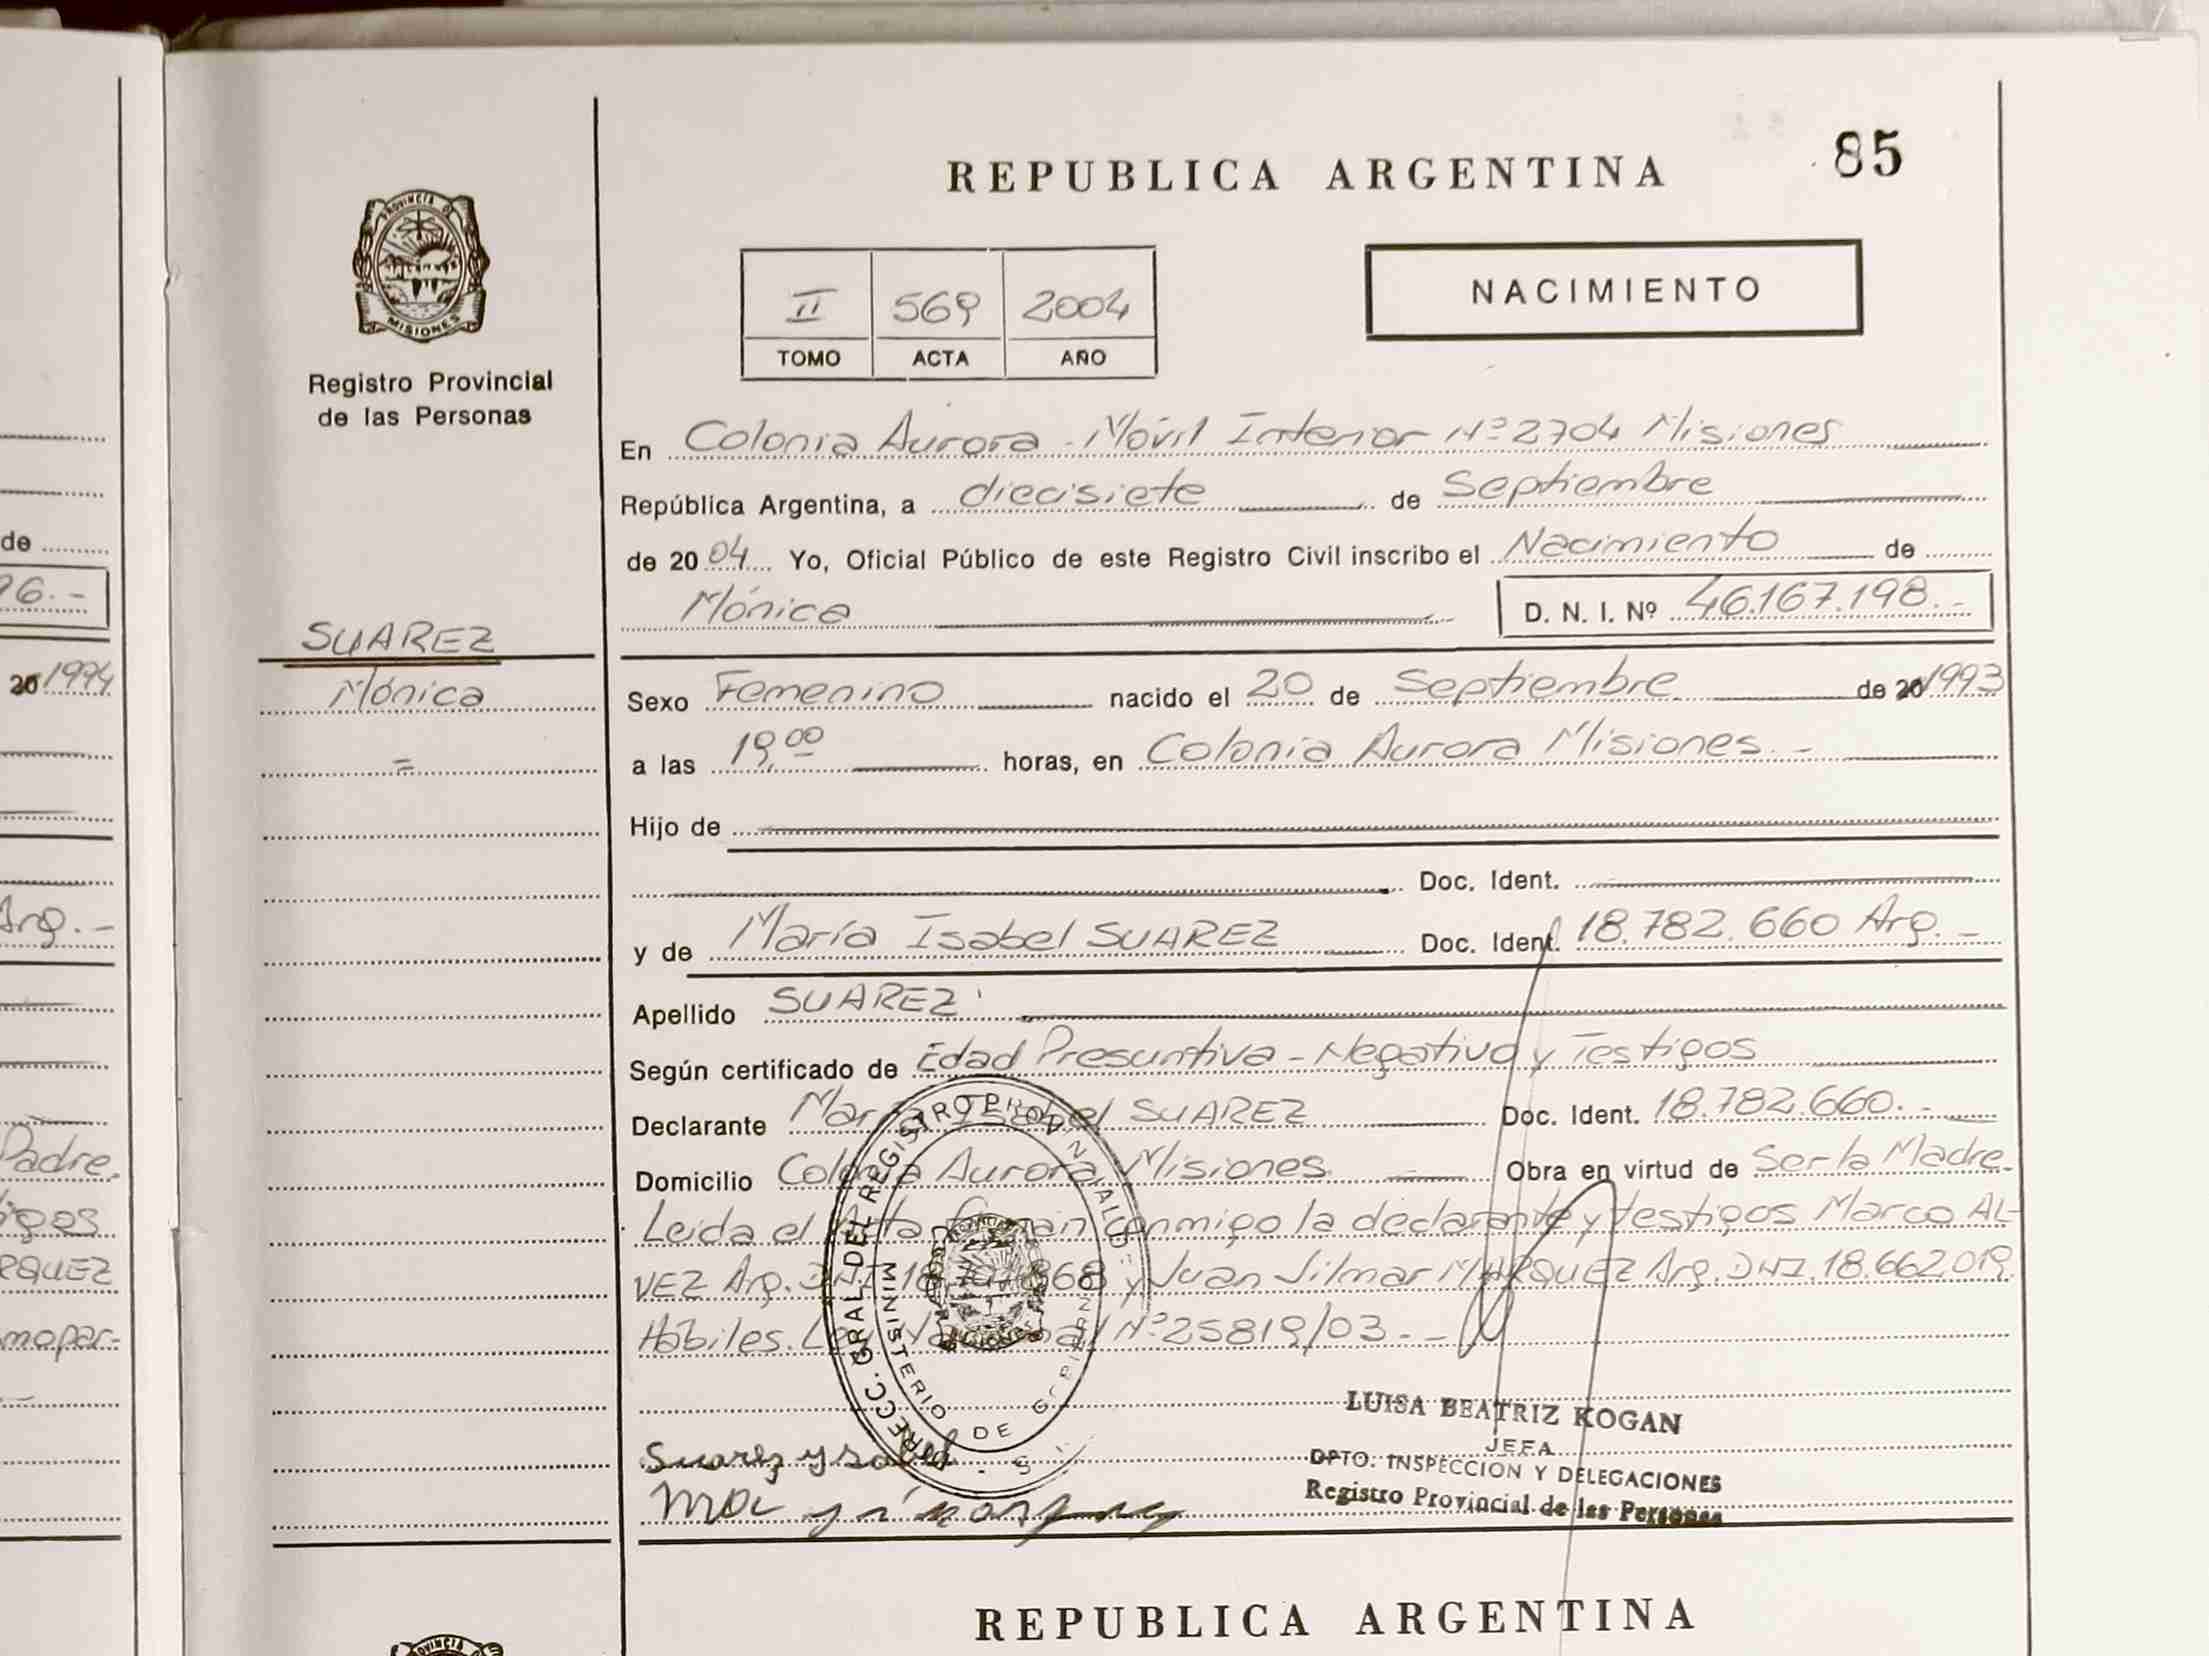 REPUBLICA ARGENTINA
85
PROVINCIA DE
MISIONES
Registro Provincial
de las Personas
II 569 2004
TOMO ACTA AÑO
NACIMIENTO
En Colonia Aurora - Móvil Interior Nº 2704 Misiones
República Argentina, a diecisiete de Septiembre
de 2004 Yo, Oficial Público de este Registro Civil inscribo el Nacimiento de
Mónica D. N. I. Nº 46.167.198.-
SUAREZ
Mónica
=
Sexo Femenino nacido el 20 de Septiembre de 20 1993
a las 19,00 horas, en Colonia Aurora Misiones. -
Hijo de
Doc. Ident.
y de María Isabel SUAREZ Doc. Ident. 18.782.660 Arg. -
Apellido SUAREZ
Según certificado de Edad Presuntiva - Negativo y Testigos
Declarante María Isabel SUAREZ Doc. Ident. 18.782.660. -
Domicilio Colonia Aurora Misiones. Obra en virtud de Ser la Madre.
Leida el Acta firman conmigo la declarante y testigos Marco AL-
VEZ Arg. DNI 868 y Juan Silmar MARQUEZ Arg. DNI. 18.662.019.
Hábiles. Ley Nacional Nº 25819/03. -
DIRECC. GRAL. DEL REGISTRO PROVINCIAL DE
MINISTERIO DE GOBIERNO
LUISA BEATRIZ KOGAN
JEFA
DPTO. INSPECCION Y DELEGACIONES
Registro Provincial de las Personas
Suarez ysabel
de
96.-
20 1994
Arg. -
Padre.
RQUEZ
REPUBLICA ARGENTINA
PROVINCIA